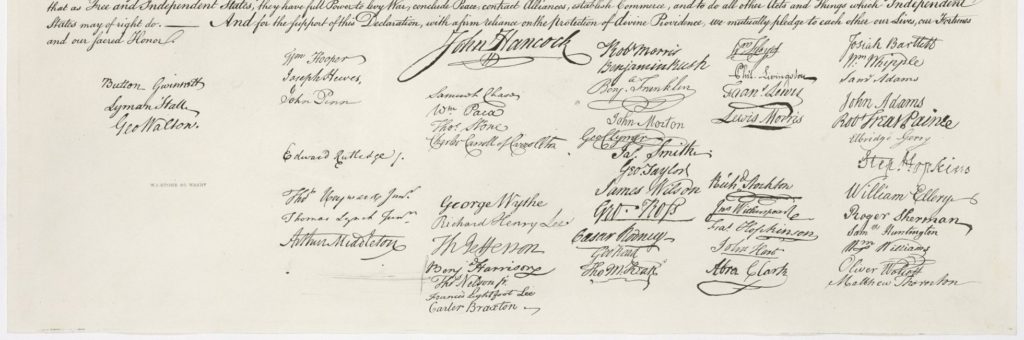 that as Free and Independent States, they have full Power to levy War, conclude Peace, contract Alliances, establish Commerce, and to do all other Acts and Things which Independent
States may of right do. — And for the support of this Declaration, with a firm reliance on the protection of divine Providence, we mutually pledge to each other our Lives, our Fortunes
and our sacred Honor.
Button Gwinnett
Lyman Hall
Geo Walton.
W. J. STONE SC WASHN
Wm Hooper
Joseph Hewes,
John Penn
Edward Rutledge /.
Thos Heyward Junr.
Thomas Lynch Junr.
Arthur Middleton
John Hancock
Samuel Chase
Wm Paca
Thos Stone
Charles Carroll of Carrollton
George Wythe
Richard Henry Lee
Th Jefferson
Benj Harrison
Thos Nelson jr.
Francis Lightfoot Lee
Carter Braxton
Robt Morris
Benjamin Rush
Benj. Franklin
John Morton
Geo Clymer
Jas. Smith
Geo. Taylor
James Wilson
Geo. Ross
Caesar Rodney
Geo Read
Tho M:Kean
Wm Floyd
Phil. Livingston
Frans. Lewis
Lewis Morris
Richd. Stockton
Jno Witherspoon
Fras. Hopkinson
John Hart
Abra Clark
Josiah Bartlett
Wm Whipple
Saml Adams
John Adams
Robt Treat Paine
Elbridge Gerry
Step. Hopkins
William Ellery
Roger Sherman
Saml Huntington
Wm Williams
Oliver Wolcott
Matthew Thornton